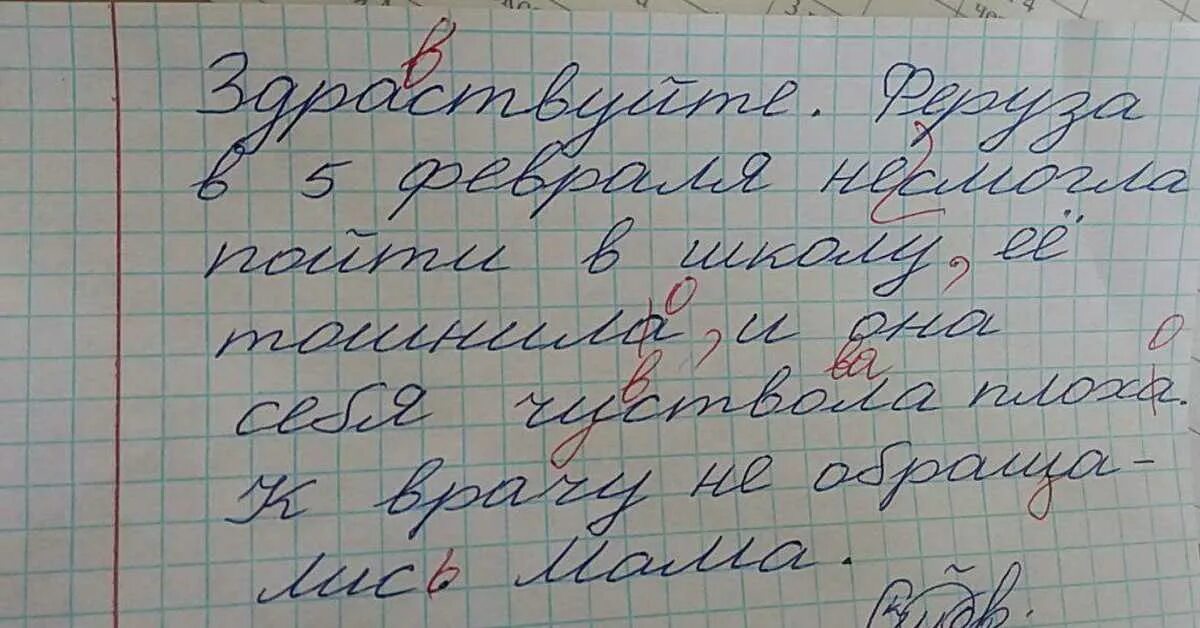 Здраствуйте. Феруза
в 5 февраля несмогла
пойти в школу, её
тошнила, и она
себя чуствола плоха.
К врачу не обраща-
лись Мама.